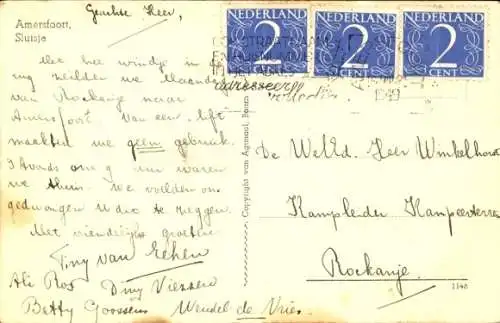 Amersfoort,
Sluisje
Geachte Heer,
Met het windje in de
rug reilden we Maandag
van Rockanje naar
Amersfoort. Van een lift
maakten we geen gebruik.
's Avonds om 9 uur waren
we thuis. We voelden ons
gedwongen U dit te zeggen.
Met vriendelijke groeten
Tiny van Eehen
Ali Ros Diny Viezzen
Betty Goossens Wendel de Vries
Copyright van Agtmaal, Bouen
NEDERLAND
2
CENT
NEDERLAND
2
CENT
NEDERLAND
2
CENT
STRAATNAAM
adresseer
1949
De WelEd. Heer Winkelhorst
Kampleider Kampeerterrein
Rockanje.
1148